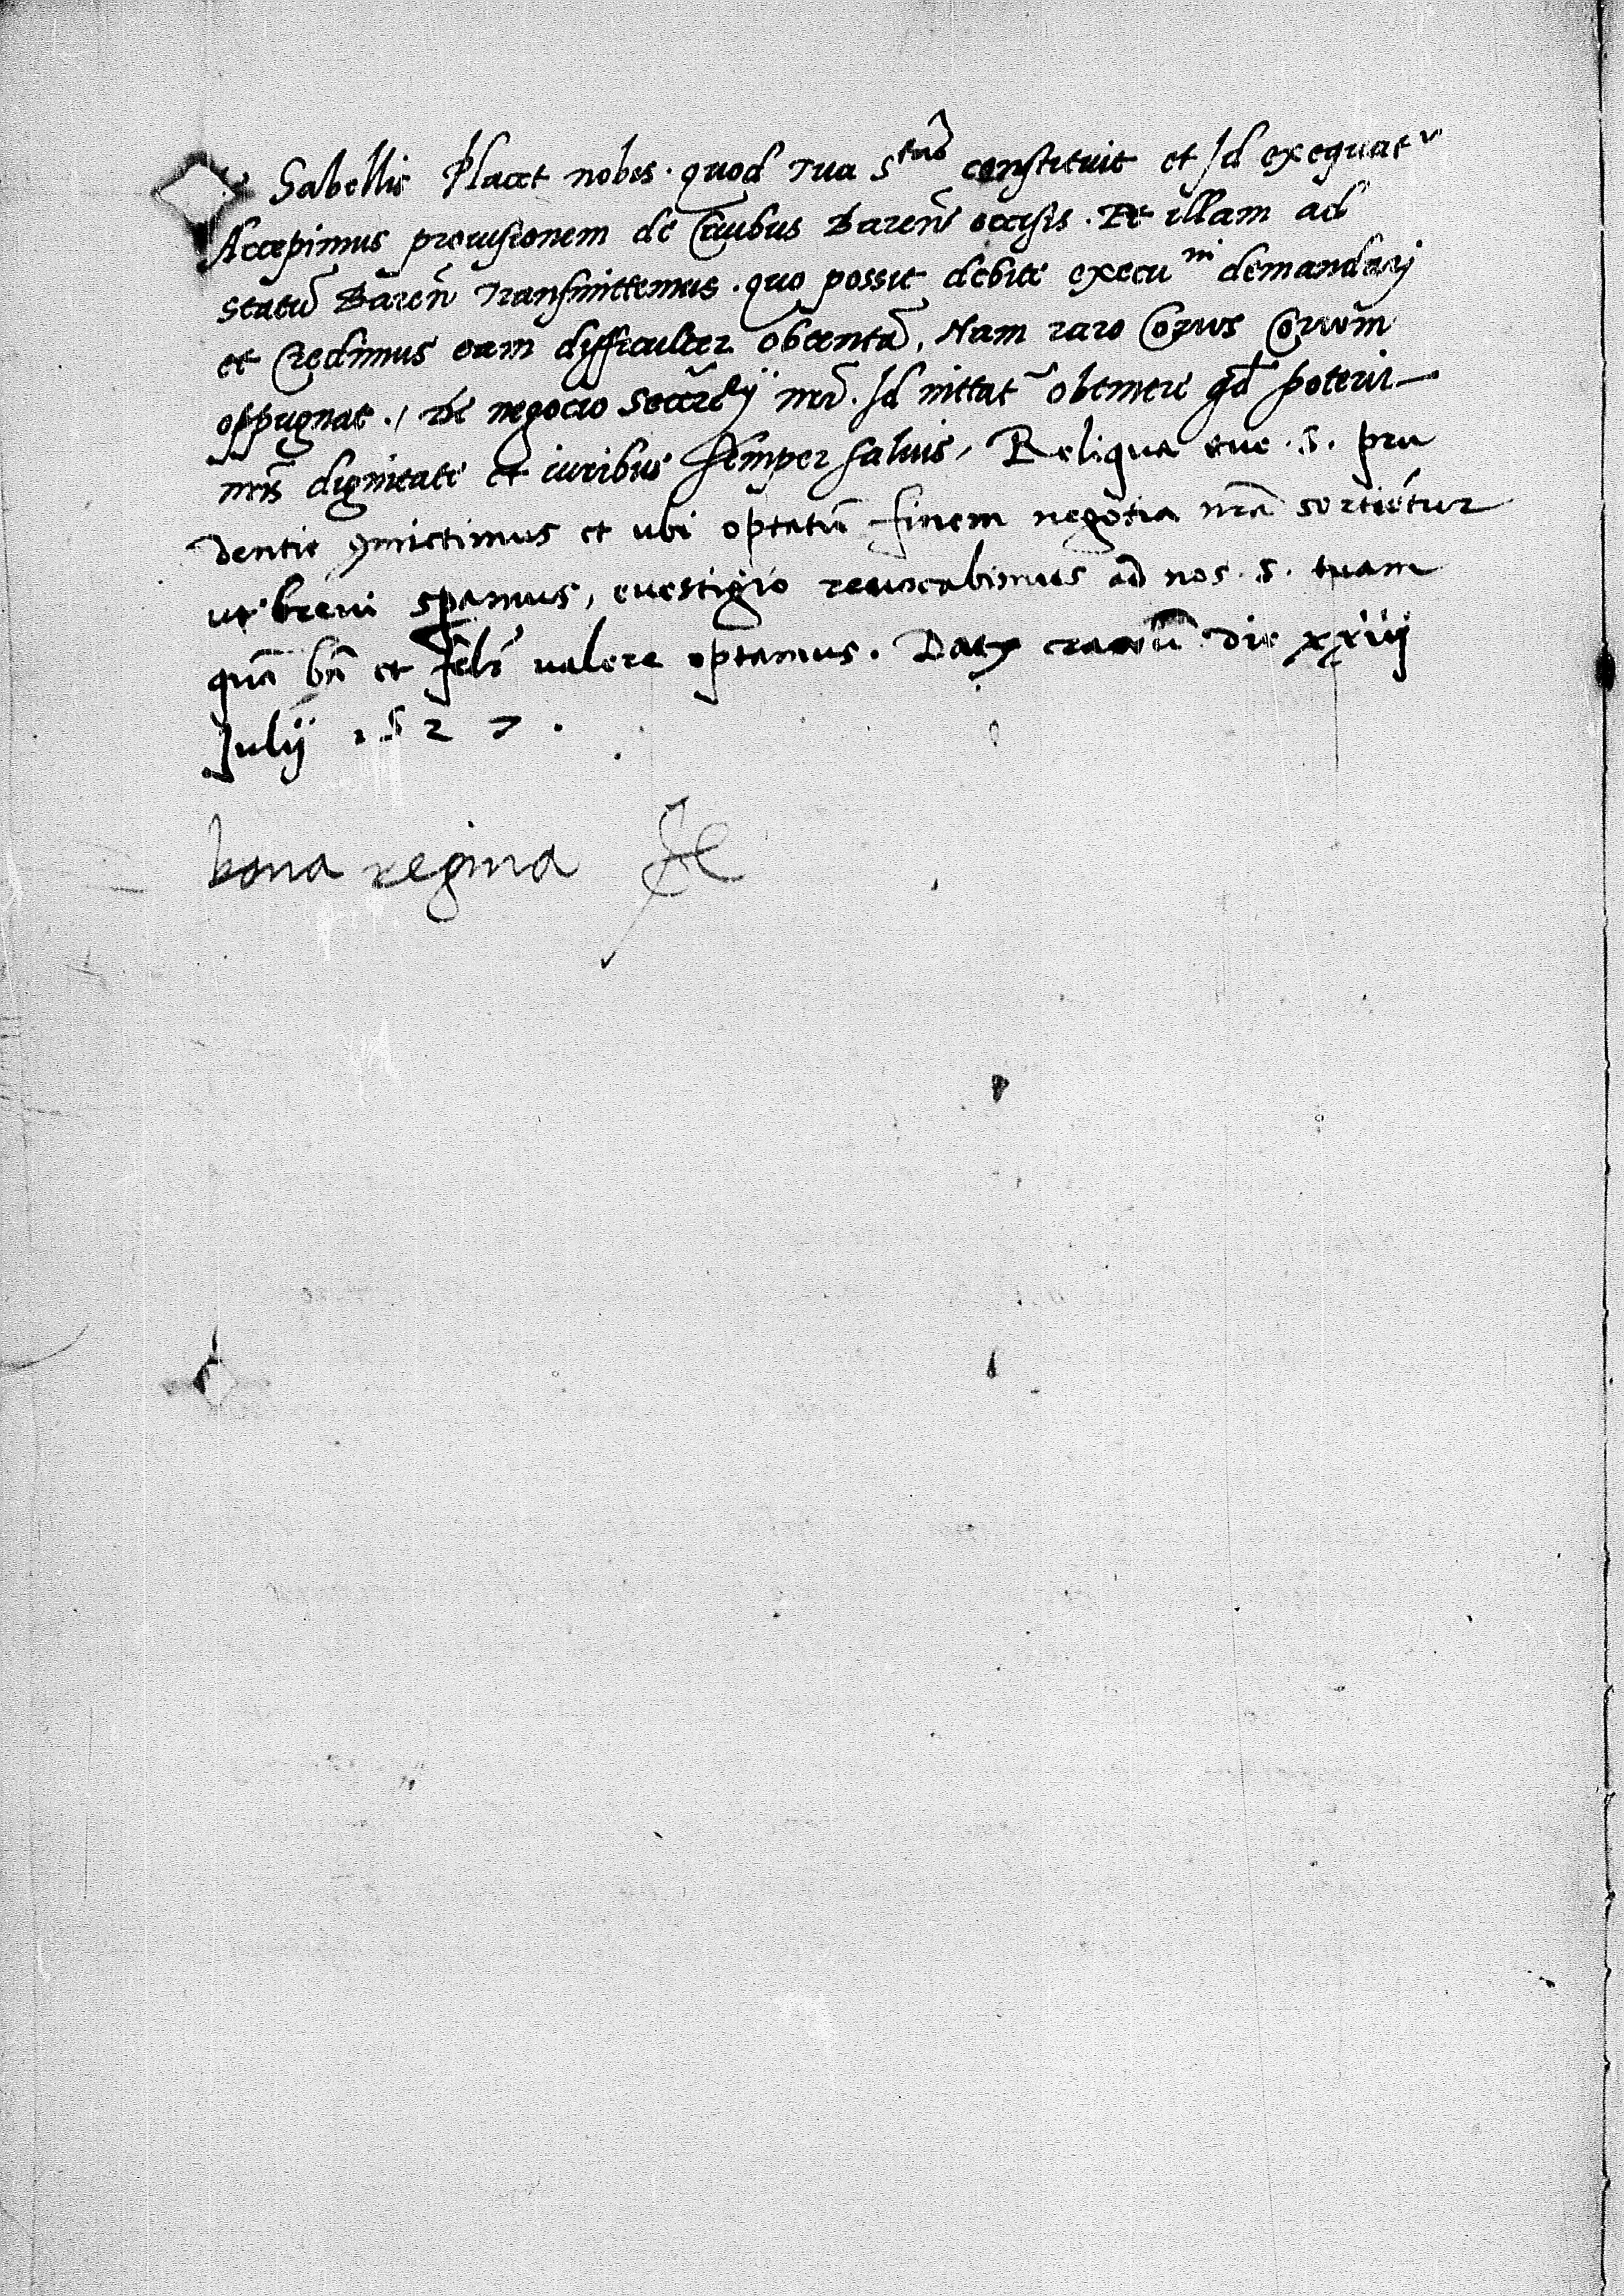 Sabellis Placet nobis. quod Tua S^tas constituit et Id exequat^r
Accepimus prouisionem de Ciuibus Bareñ occisis. Et illam ad
statũ Bareñ Transmittemus. quo possit debite execu^ni demandarj
et Credimus eam difficulter obtentã, Nam raro Coruus Coruum
oppugnat./ De negocio Secrẽ^rij nr̃i. Id nittat~ obtinere qd poterit
nr̃is dignitate et iuribus semper saluis, Reliqua tue .S. pru
dentie ꝯmictimus et ubi optatũ finem negotia nr̃a sortiẽtur
ut breui speramus, euestigio reuocabimus ad nos .S. tuam
quã bñ et felr̃ valere optamus. Datꝫ cracouie die xxiiij
Julij 1527.
bona regina